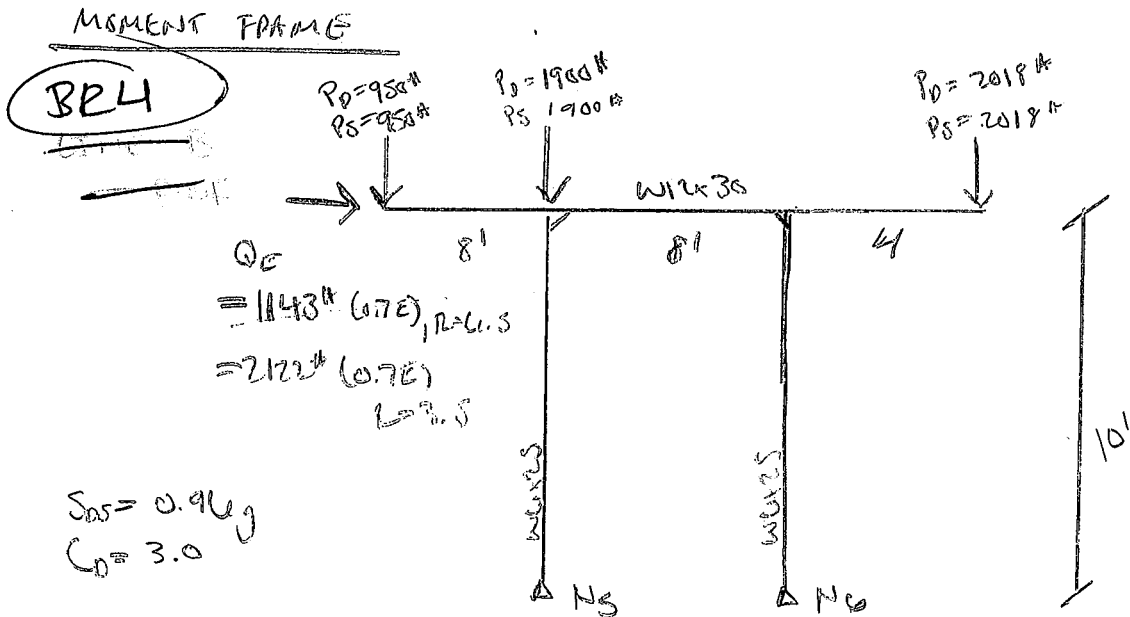 MOMENT FRAME
BR4
PD=950#
PS=950#
PD=1900#
PS 1900#
PD=2018#
PS=2018#
W12x30
8'
8'
4
QE
=1143# (0.7E), R=6.5
=2122# (0.7E)
R=3.5
W6x25
W6x25
10'
SDS= 0.96g
CD= 3.0
N5
N6